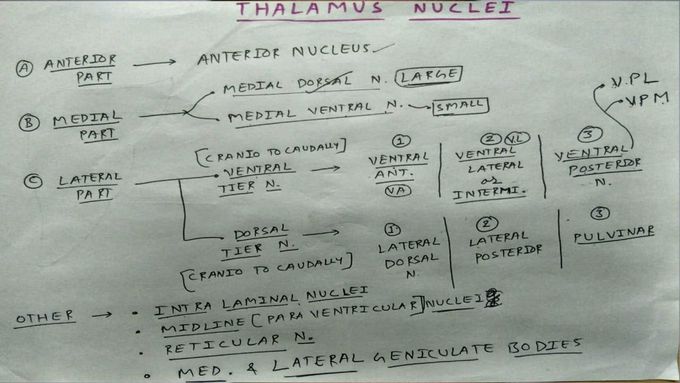 THALAMUS NUCLEI
Ⓐ ANTERIOR PART → ANTERIOR NUCLEUS
Ⓑ MEDIAL PART → MEDIAL DORSAL N. (LARGE)
MEDIAL VENTRAL N. → SMALL
Ⓒ LATERAL PART
[CRANIO TO CAUDALLY]
VENTRAL TIER N. →
① VENTRAL ANT. (VA)
② (VL) VENTRAL LATERAL or INTERMI.
③ VENTRAL POSTERIOR N.
V.PL
VPM
DORSAL TIER N. →
[CRANIO TO CAUDALLY]
① LATERAL DORSAL N.
② LATERAL POSTERIOR
③ PULVINAR
OTHER → • INTRA LAMINAL NUCLEI
• MIDLINE [PARA VENTRICULAR] NUCLEI
• RETICULAR N.
• MED. & LATERAL GENICULATE BODIES